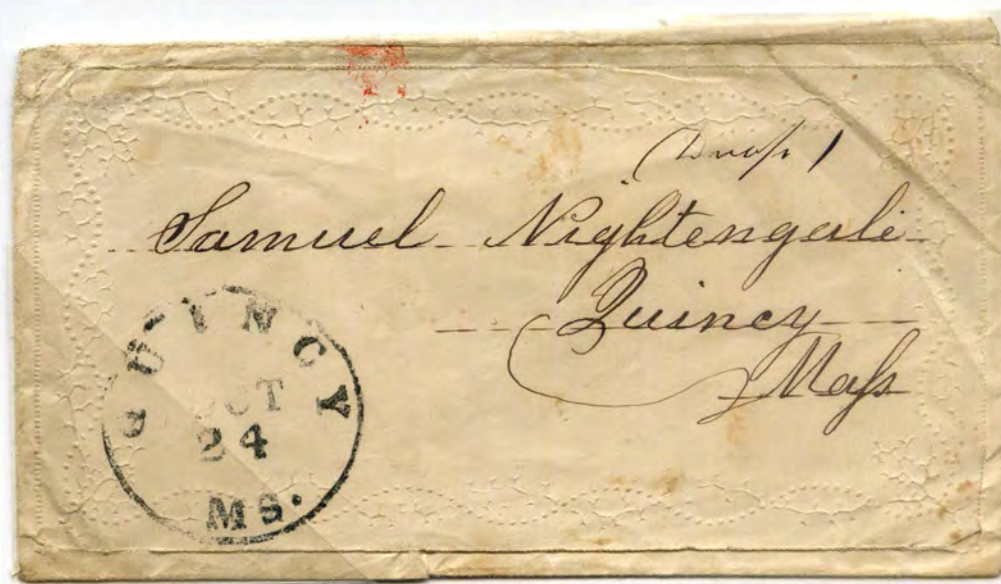 (Drop)
Samuel Nightengale
Quincy
Mass
QUINCY
OCT
24
MS.